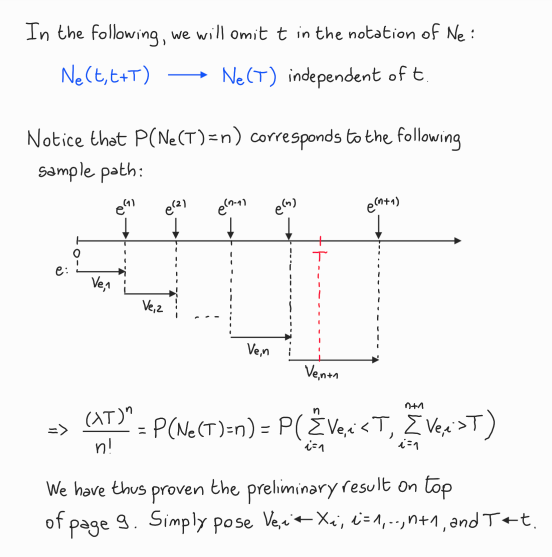 In the following, we will omit t in the notation of Ne :
Ne(t,t+T) → Ne(T) independent of t.
Notice that P(Ne(T)=n) corresponds to the following
sample path:
e⁽¹⁾ e⁽²⁾ e⁽ⁿ⁻¹⁾ e⁽ⁿ⁾ e⁽ⁿ⁺¹⁾
0 T
e:
Ve,1
Ve,2
...
Ve,n
Ve,n+1
=> (λT)ⁿ / n! = P(Ne(T)=n) = P( ∑_{i=1}^{n} Ve,i < T, ∑_{i=1}^{n+1} Ve,i > T )
We have thus proven the preliminary result on top
of page 9. Simply pose Ve,i ← Xi, i=1,..,n+1, and T ← t.